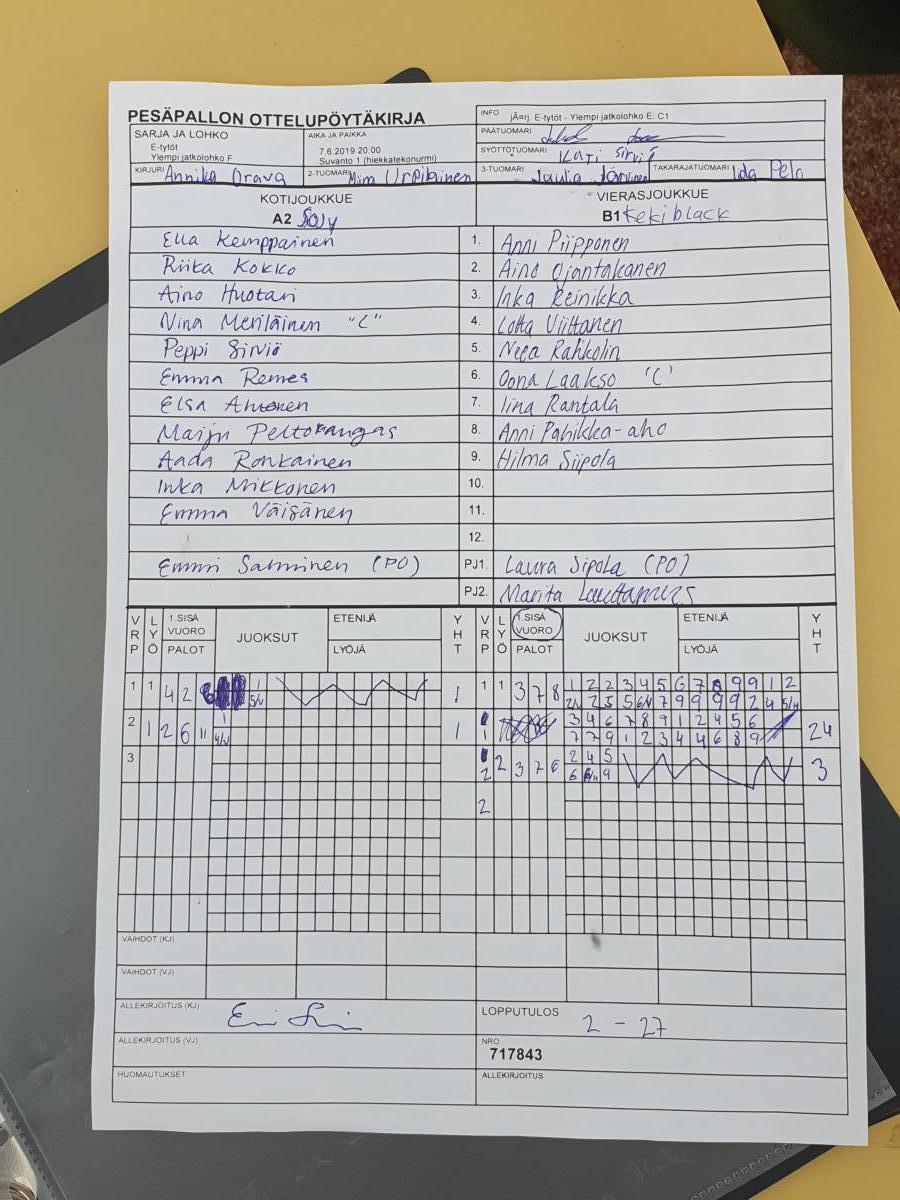 PESÄPALLON OTTELUPÖYTÄKIRJA
INFO jÃ¤rj. E-tytöt - Ylempi jatkolohko E: C1
SARJA JA LOHKO
E-tytöt
Ylempi jatkolohko F
AIKA JA PAIKKA
7.6.2019 20:00
Suvanto 1 (hiekkatekonurmi)
PÄÄTUOMARI
SYÖTTÖTUOMARI Kati Sirviö
KIRJURI Annika Orava
2-TUOMARI Mimi Urpilainen
3-TUOMARI Järvinen
TAKARAJATUOMARI Ida
KOTIJOUKKUE
A2
VIERASJOUKKUE
B1 Keki black
Ella Kemppainen 1. Anni Piipponen
Riika Kokko 2. Aino Ojantakanen
Aino Huotari 3. Inka Reinikka
Nina Meriläinen "C" 4. Lotta Viittanen
Peppi Sirviö 5. Neea Rahkolin
Emma Remes 6. Oona Laakso 'C'
Elsa 7. Iina Rantala
Marju Peltokangas 8. Anni Pahikka-aho
Aada Ronkainen 9. Hilma Siipola
Inka Mikkonen 10.
Emma Väisänen 11.
12.
Emmi Salminen (PO) PJ1. Laura Sipola (PO)
PJ2. Marita
VRP LYÖ 1.SISÄVUORO PALOT JUOKSUT ETENIJÄ LYÖJÄ YHT VRP LYÖ 1.SISÄVUORO PALOT JUOKSUT ETENIJÄ LYÖJÄ YHT
1 1 4 2 1 1 1 1 3 7 8 1 2 2 3 4 5 6 7 8 9 9 1 2
2 1 2 6 11 1 1 1 3 4 6 7 8 9 1 2 4 5 6 24
7 7 9 1 2 3 4 4 6 8 9
3 2 2 3 7 6 2 4 5 3
2
VAIHDOT (KJ)
VAIHDOT (VJ)
ALLEKIRJOITUS (KJ)
LOPPUTULOS 2 - 27
ALLEKIRJOITUS (VJ)
NRO
717843
HUOMAUTUKSET
ALLEKIRJOITUS